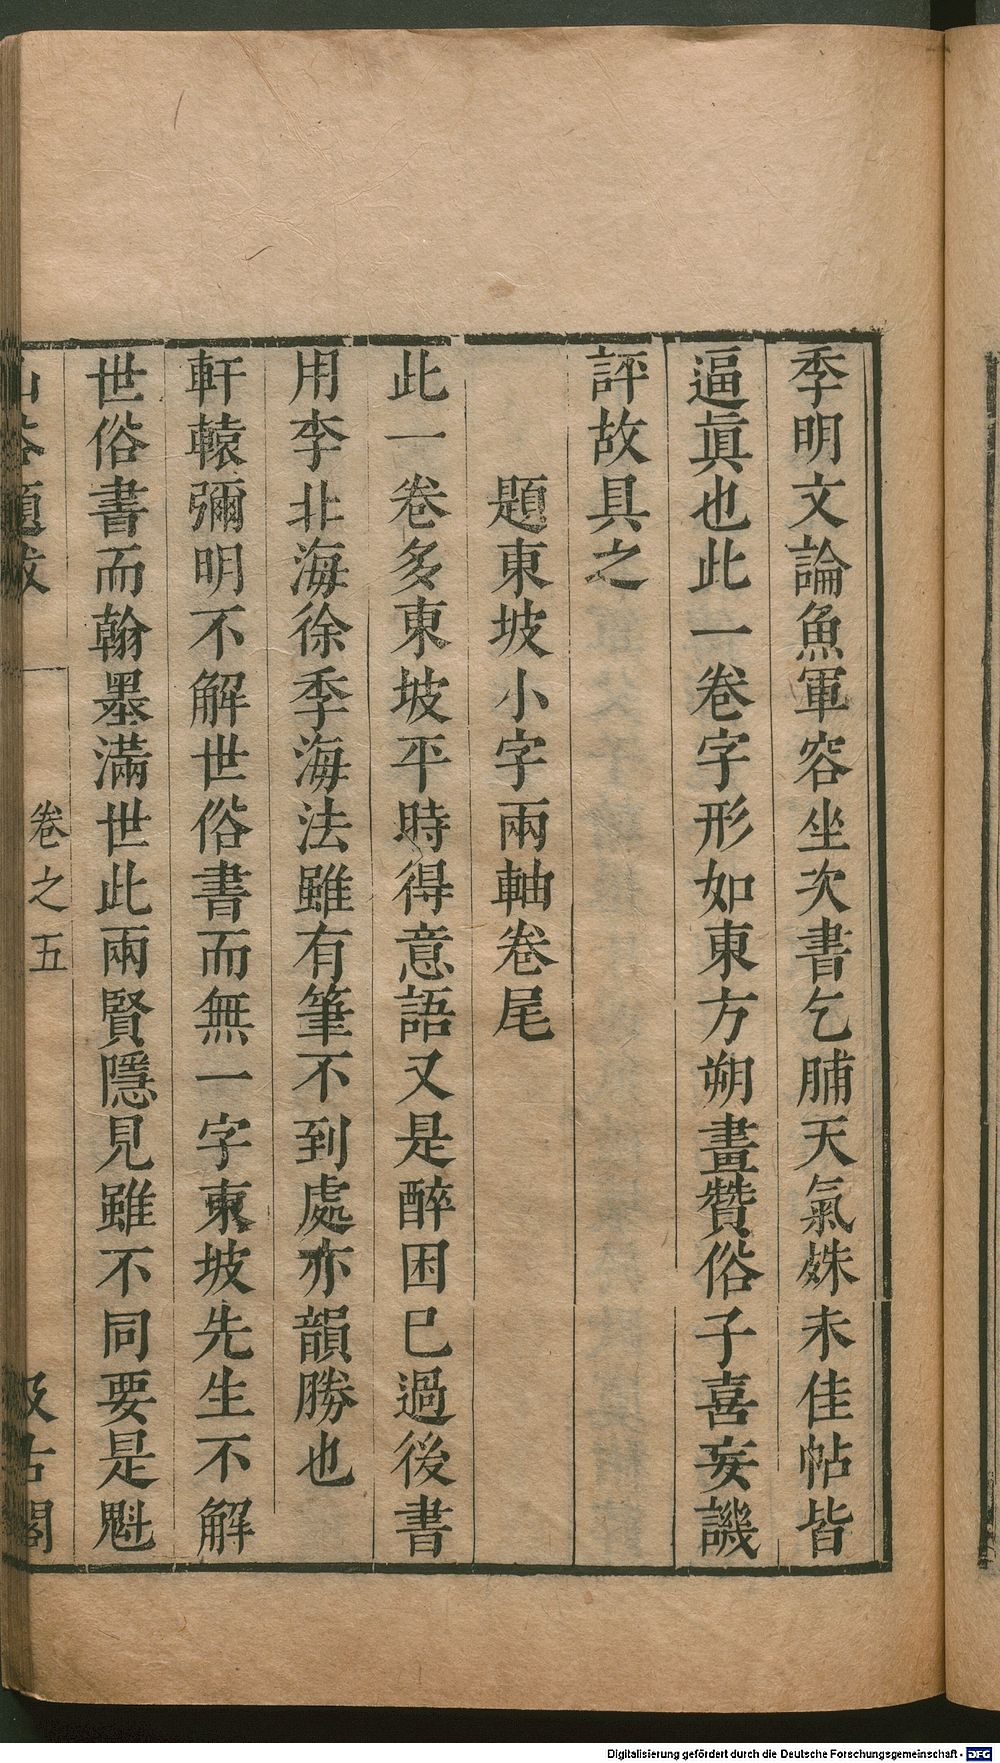 季明文論魚軍容坐次書乞脯天氣姝未佳帖皆
逼眞也此一卷字形如東方朔畫贊俗子喜妄譏
評故具之
題東坡小字兩軸卷尾
此一卷多東坡平時得意語又是醉困已過後書
用李北海徐季海法雖有筆不到處亦韻勝也
軒轅彌明不解世俗書而無一字東坡先生不解
世俗書而翰墨滿世此兩賢隱見雖不同要是魁
山谷題跋 卷之五 汲古閣
Digitalisierung gefördert durch die Deutsche Forschungsgemeinschaft - DFG